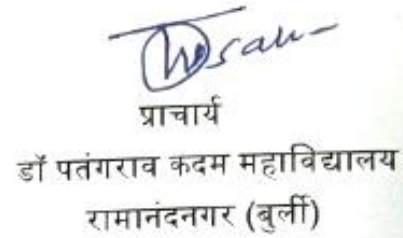 प्राचार्य
डॉ पतंगराव कदम महाविद्यालय
रामानंदनगर (बुर्ली)